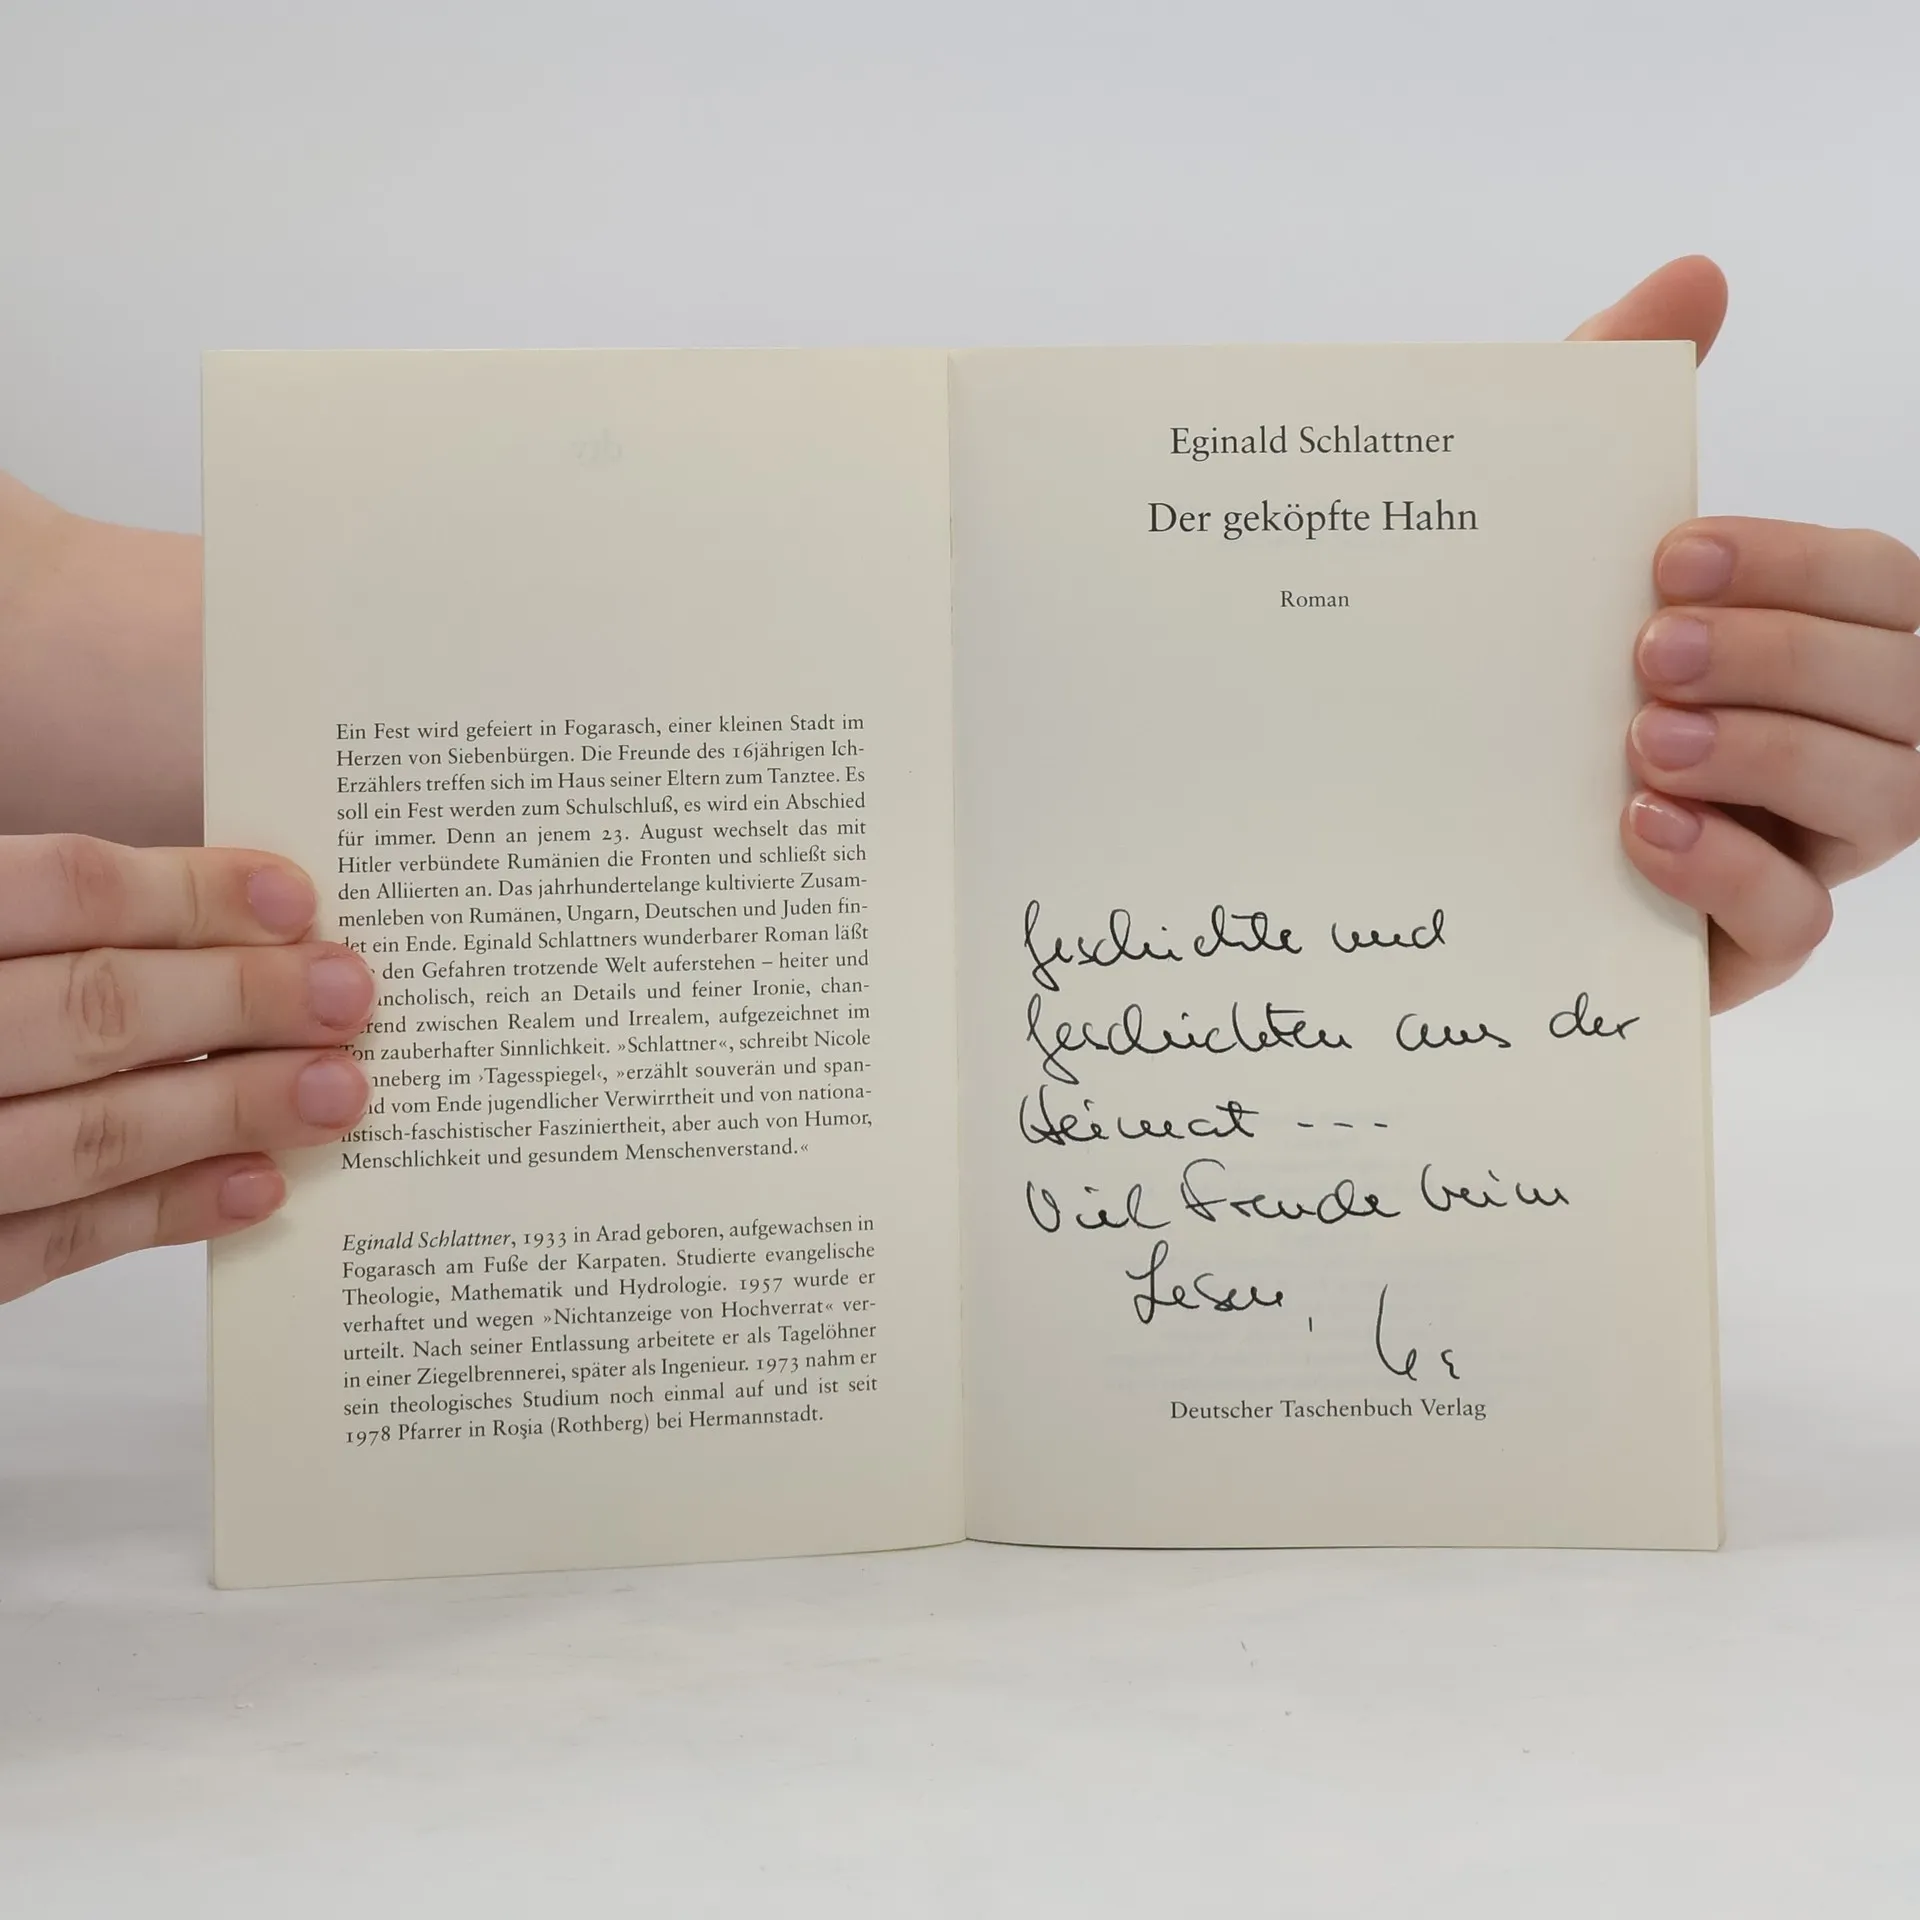 Ein Fest wird gefeiert in Fogarasch, einer kleinen Stadt im
Herzen von Siebenbürgen. Die Freunde des 16jährigen Ich-
Erzählers treffen sich im Haus seiner Eltern zum Tanztee. Es
soll ein Fest werden zum Schulschluß, es wird ein Abschied
für immer. Denn an jenem 23. August wechselt das mit
Hitler verbündete Rumänien die Fronten und schließt sich
den Alliierten an. Das jahrhundertelange kultivierte Zusam-
menleben von Rumänen, Ungarn, Deutschen und Juden fin-
det ein Ende. Eginald Schlattners wunderbarer Roman läßt
den Gefahren trotzende Welt auferstehen – heiter und
ncholisch, reich an Details und feiner Ironie, chan-
rend zwischen Realem und Irrealem, aufgezeichnet im
Ton zauberhafter Sinnlichkeit. »Schlattner«, schreibt Nicole
nneberg im ›Tagesspiegel‹, »erzählt souverän und span-
nd vom Ende jugendlicher Verwirrtheit und von nationa-
listisch-faschistischer Fasziniertheit, aber auch von Humor,
Menschlichkeit und gesundem Menschenverstand.«
Eginald Schlattner, 1933 in Arad geboren, aufgewachsen in
Fogarasch am Fuße der Karpaten. Studierte evangelische
Theologie, Mathematik und Hydrologie. 1957 wurde er
verhaftet und wegen »Nichtanzeige von Hochverrat« ver-
urteilt. Nach seiner Entlassung arbeitete er als Tagelöhner
in einer Ziegelbrennerei, später als Ingenieur. 1973 nahm er
sein theologisches Studium noch einmal auf und ist seit
1978 Pfarrer in Roşia (Rothberg) bei Hermannstadt.
Eginald Schlattner
Der geköpfte Hahn
Roman
Geschichte und
Geschichten aus der
Heimat ---
Viel Freude beim
Lesen,
Deutscher Taschenbuch Verlag